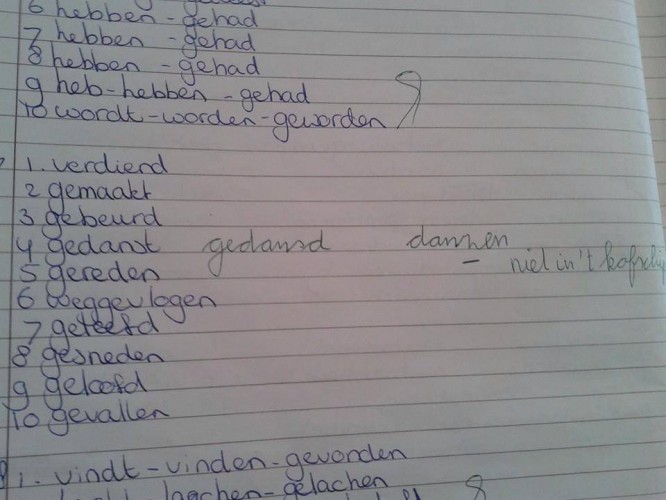 6 hebben - gehad
7 hebben - gehad
8 hebben - gehad
9 heb - hebben - gehad
10 wordt - worden - geworden
1. verdiend
2 gemaakt
3 gebeurd
4 gedanst gedansd dansen
- niet in 't kofschip
5 gereden
6 weggevlogen
7
8 gesneden
9 geloofd
10 gevallen
1. vindt - vinden - gevonden
lachen - gelachen